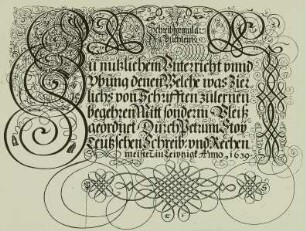 Schreibformular
Büchlein
Zu nutzlichem Unterricht vnnd
Vbung denen Welche was Zier
lichs von Schrifften zulernen
begehren Mitt sonderm Vleiß
geordnet Durch Petrum Stoy
Teütschen Schreib: vnd Rechen
meister in Leipzigk Anno, 1639